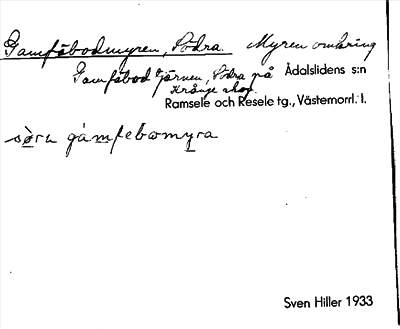 Gamfäbodmyren, Södra. Myren omkring
Gamfäbodtjärnen, Södra på Ådalslidens s:n
Krånge skog.
Ramsele och Resele tg., Västernorrl. l.
sò̱ra gám̱febωmy̱ra
Sven Hiller 1933